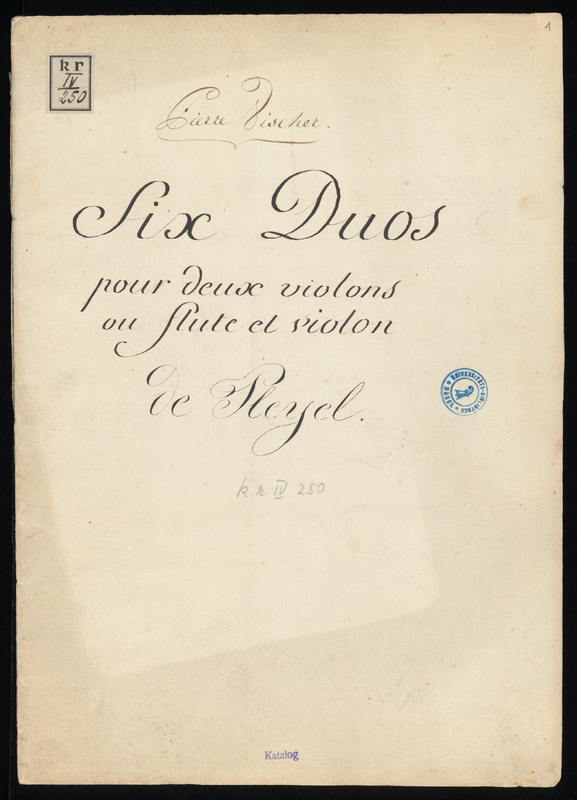 1
kr
IV
250
Pierre Vischer.
Six Duos
pour deux violons
ou flute et violon
de Pleyel.
kr IV 250
Katalog